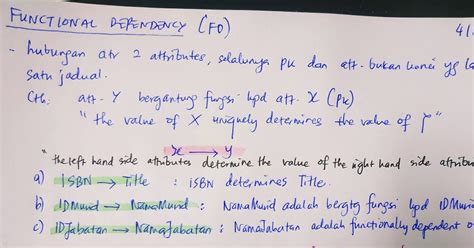 FUNCTIONAL DEPENDENCY (FD)
41
- hubungan atr 2 attributes, selalunya pk dan att. bukan kunci yg
satu jadual.
Cth: att. Y bergantung fungsi kpd att. X (PK)
"the value of X uniquely determines the value of Y"
x → y
"the left hand side attributes determine the value of the right hand side
a) ISBN → Title : ISBN determines Title.
b) IDMurid → NamaMurid : NamaMurid adalah bergtg fungsi kpd IDMurid
c) IDJabatan → NamaJabatan : NamaJabatan adalah functionally dependent